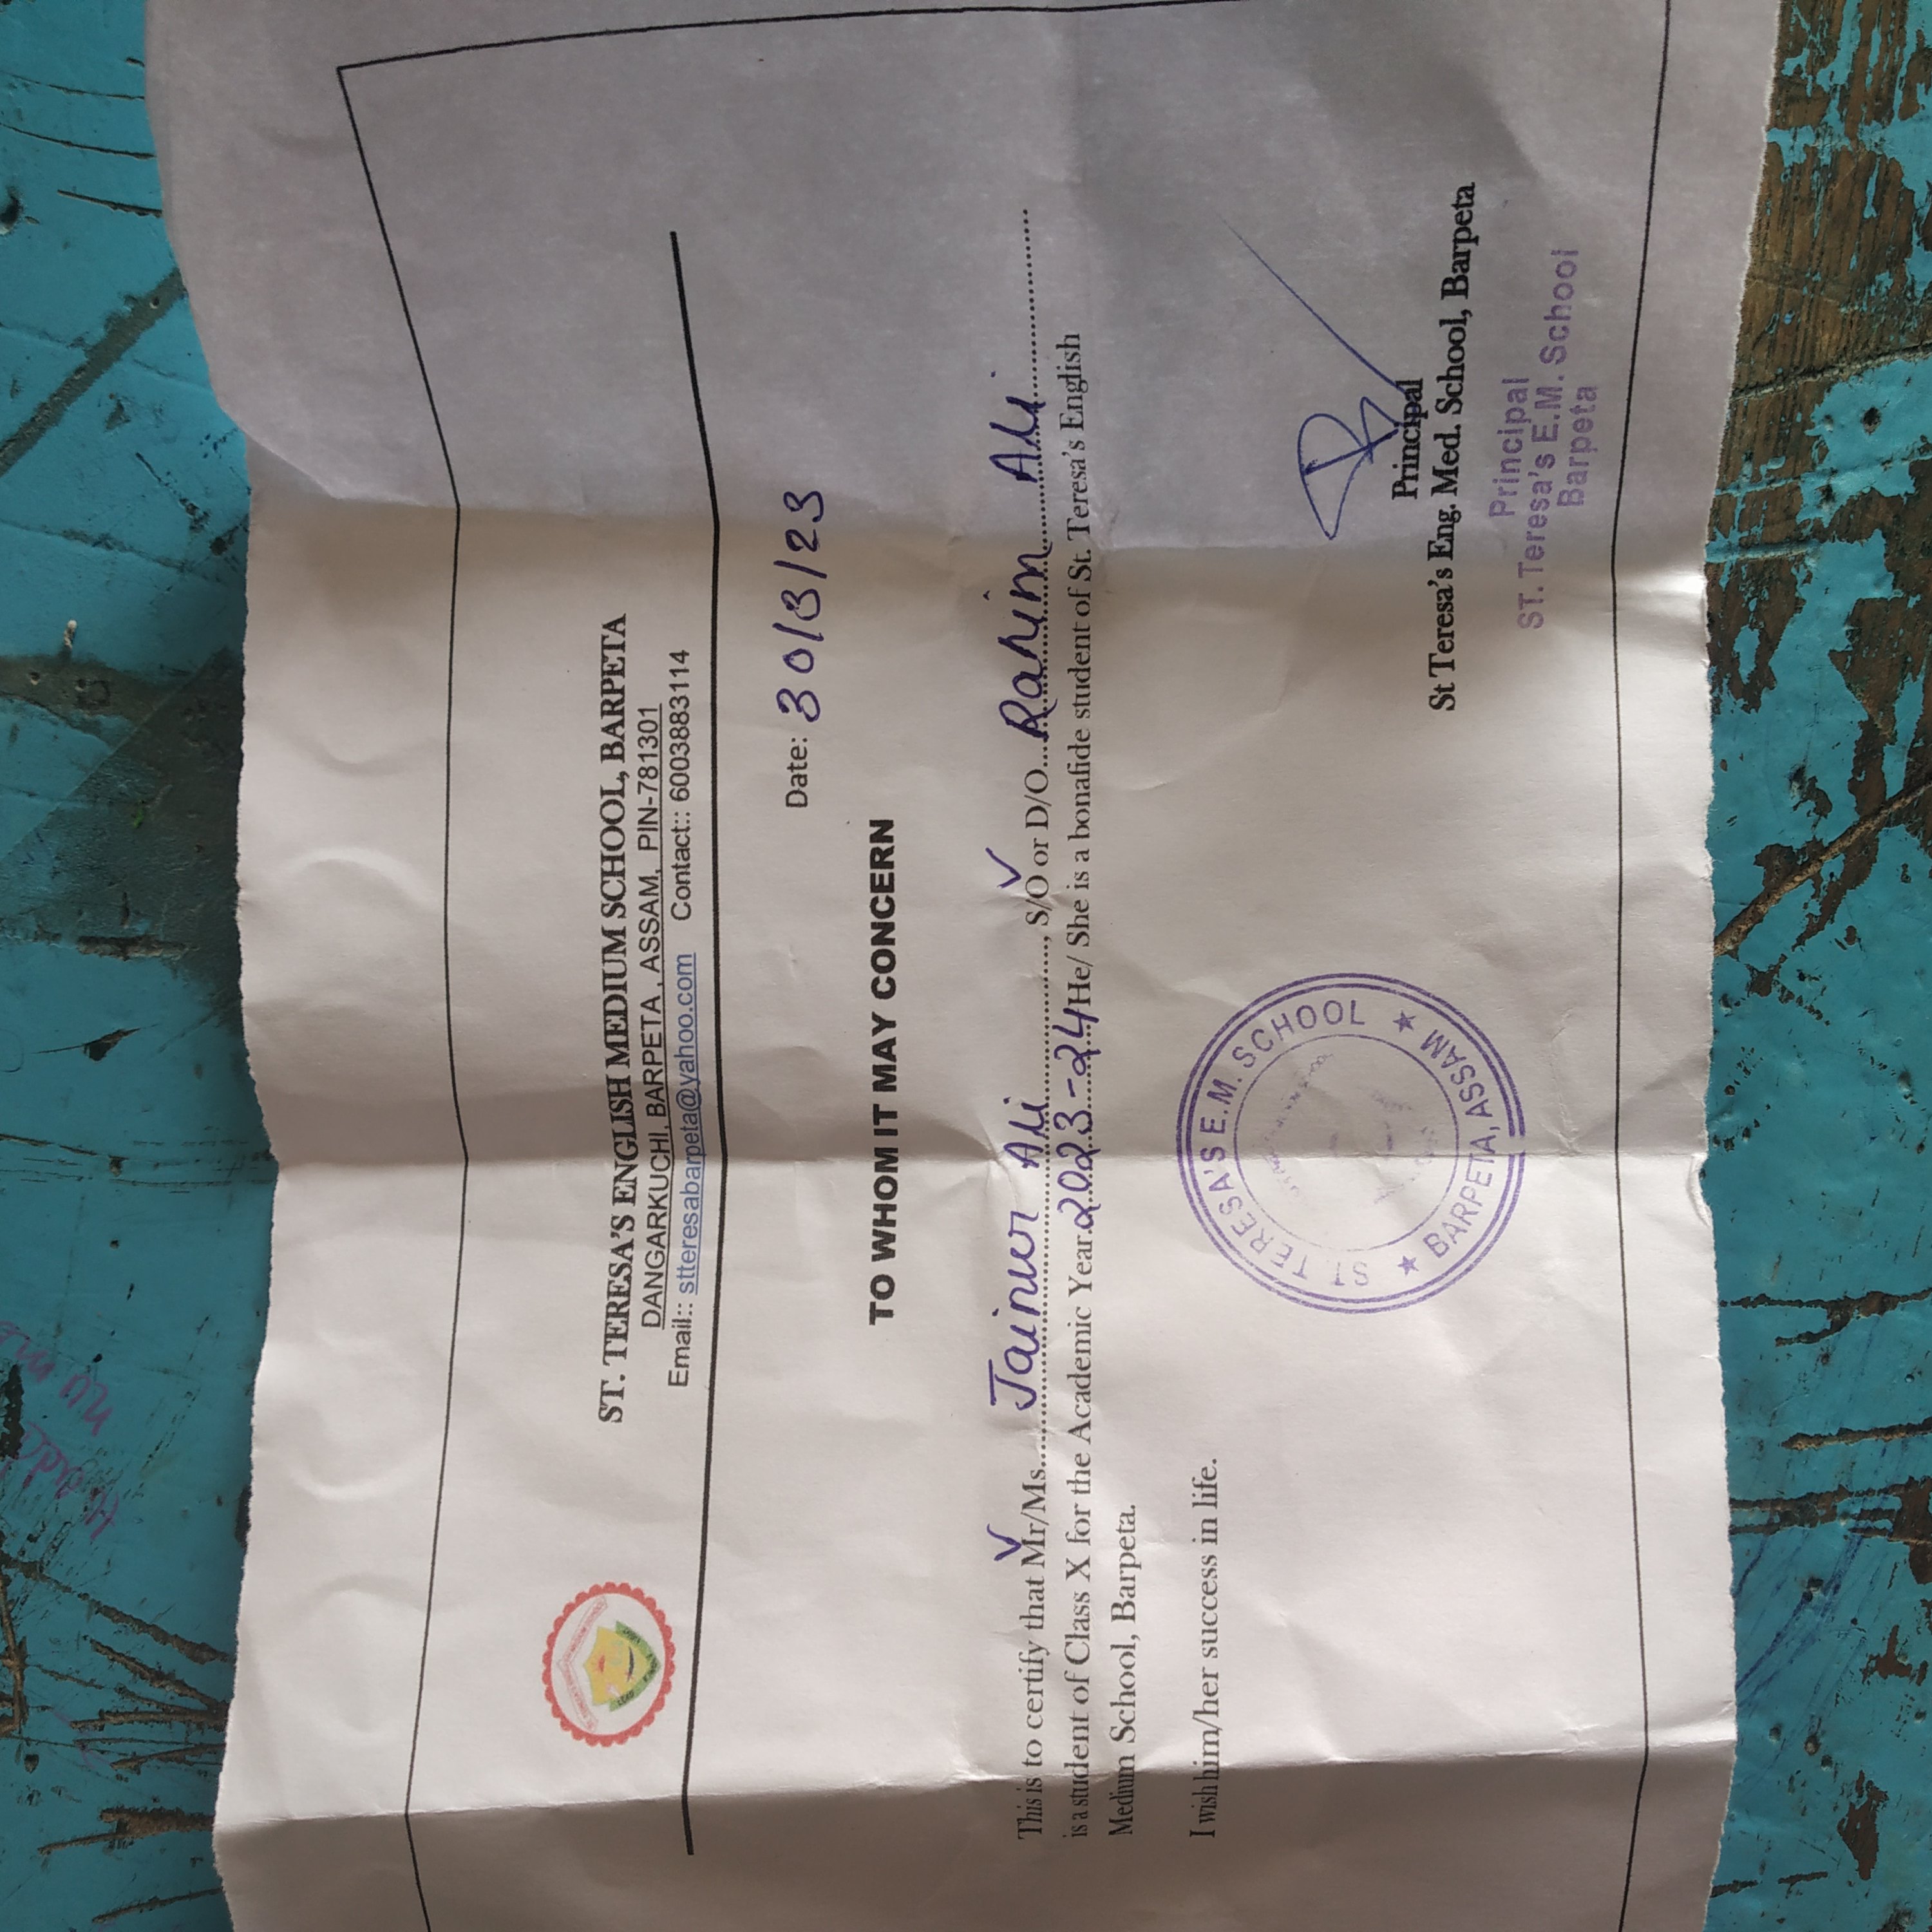 ST. TERESA'S ENGLISH MEDIUM SCHOOL, BARPETA
DANGARKUCHI, BARPETA , ASSAM, PIN-781301
Email:: stteresabarpeta@yahoo.com Contact:: 6003883114
Date: 30/3/23
TO WHOM IT MAY CONCERN
This is to certify that Mr/Ms.....Jainur Ali....................., S/O or D/O...Rahim Ali.....................
is a student of Class X for the Academic Year.2023-24 He/ She is a bonafide student of St. Teresa's English
Medium School, Barpeta.
I wish him/her success in life.
ST TERESA'S E.M. SCHOOL
★ BARPETA, ASSAM ★
Principal
St Teresa's Eng. Med. School, Barpeta
Principal
ST. Teresa's E.M. School
Barpeta